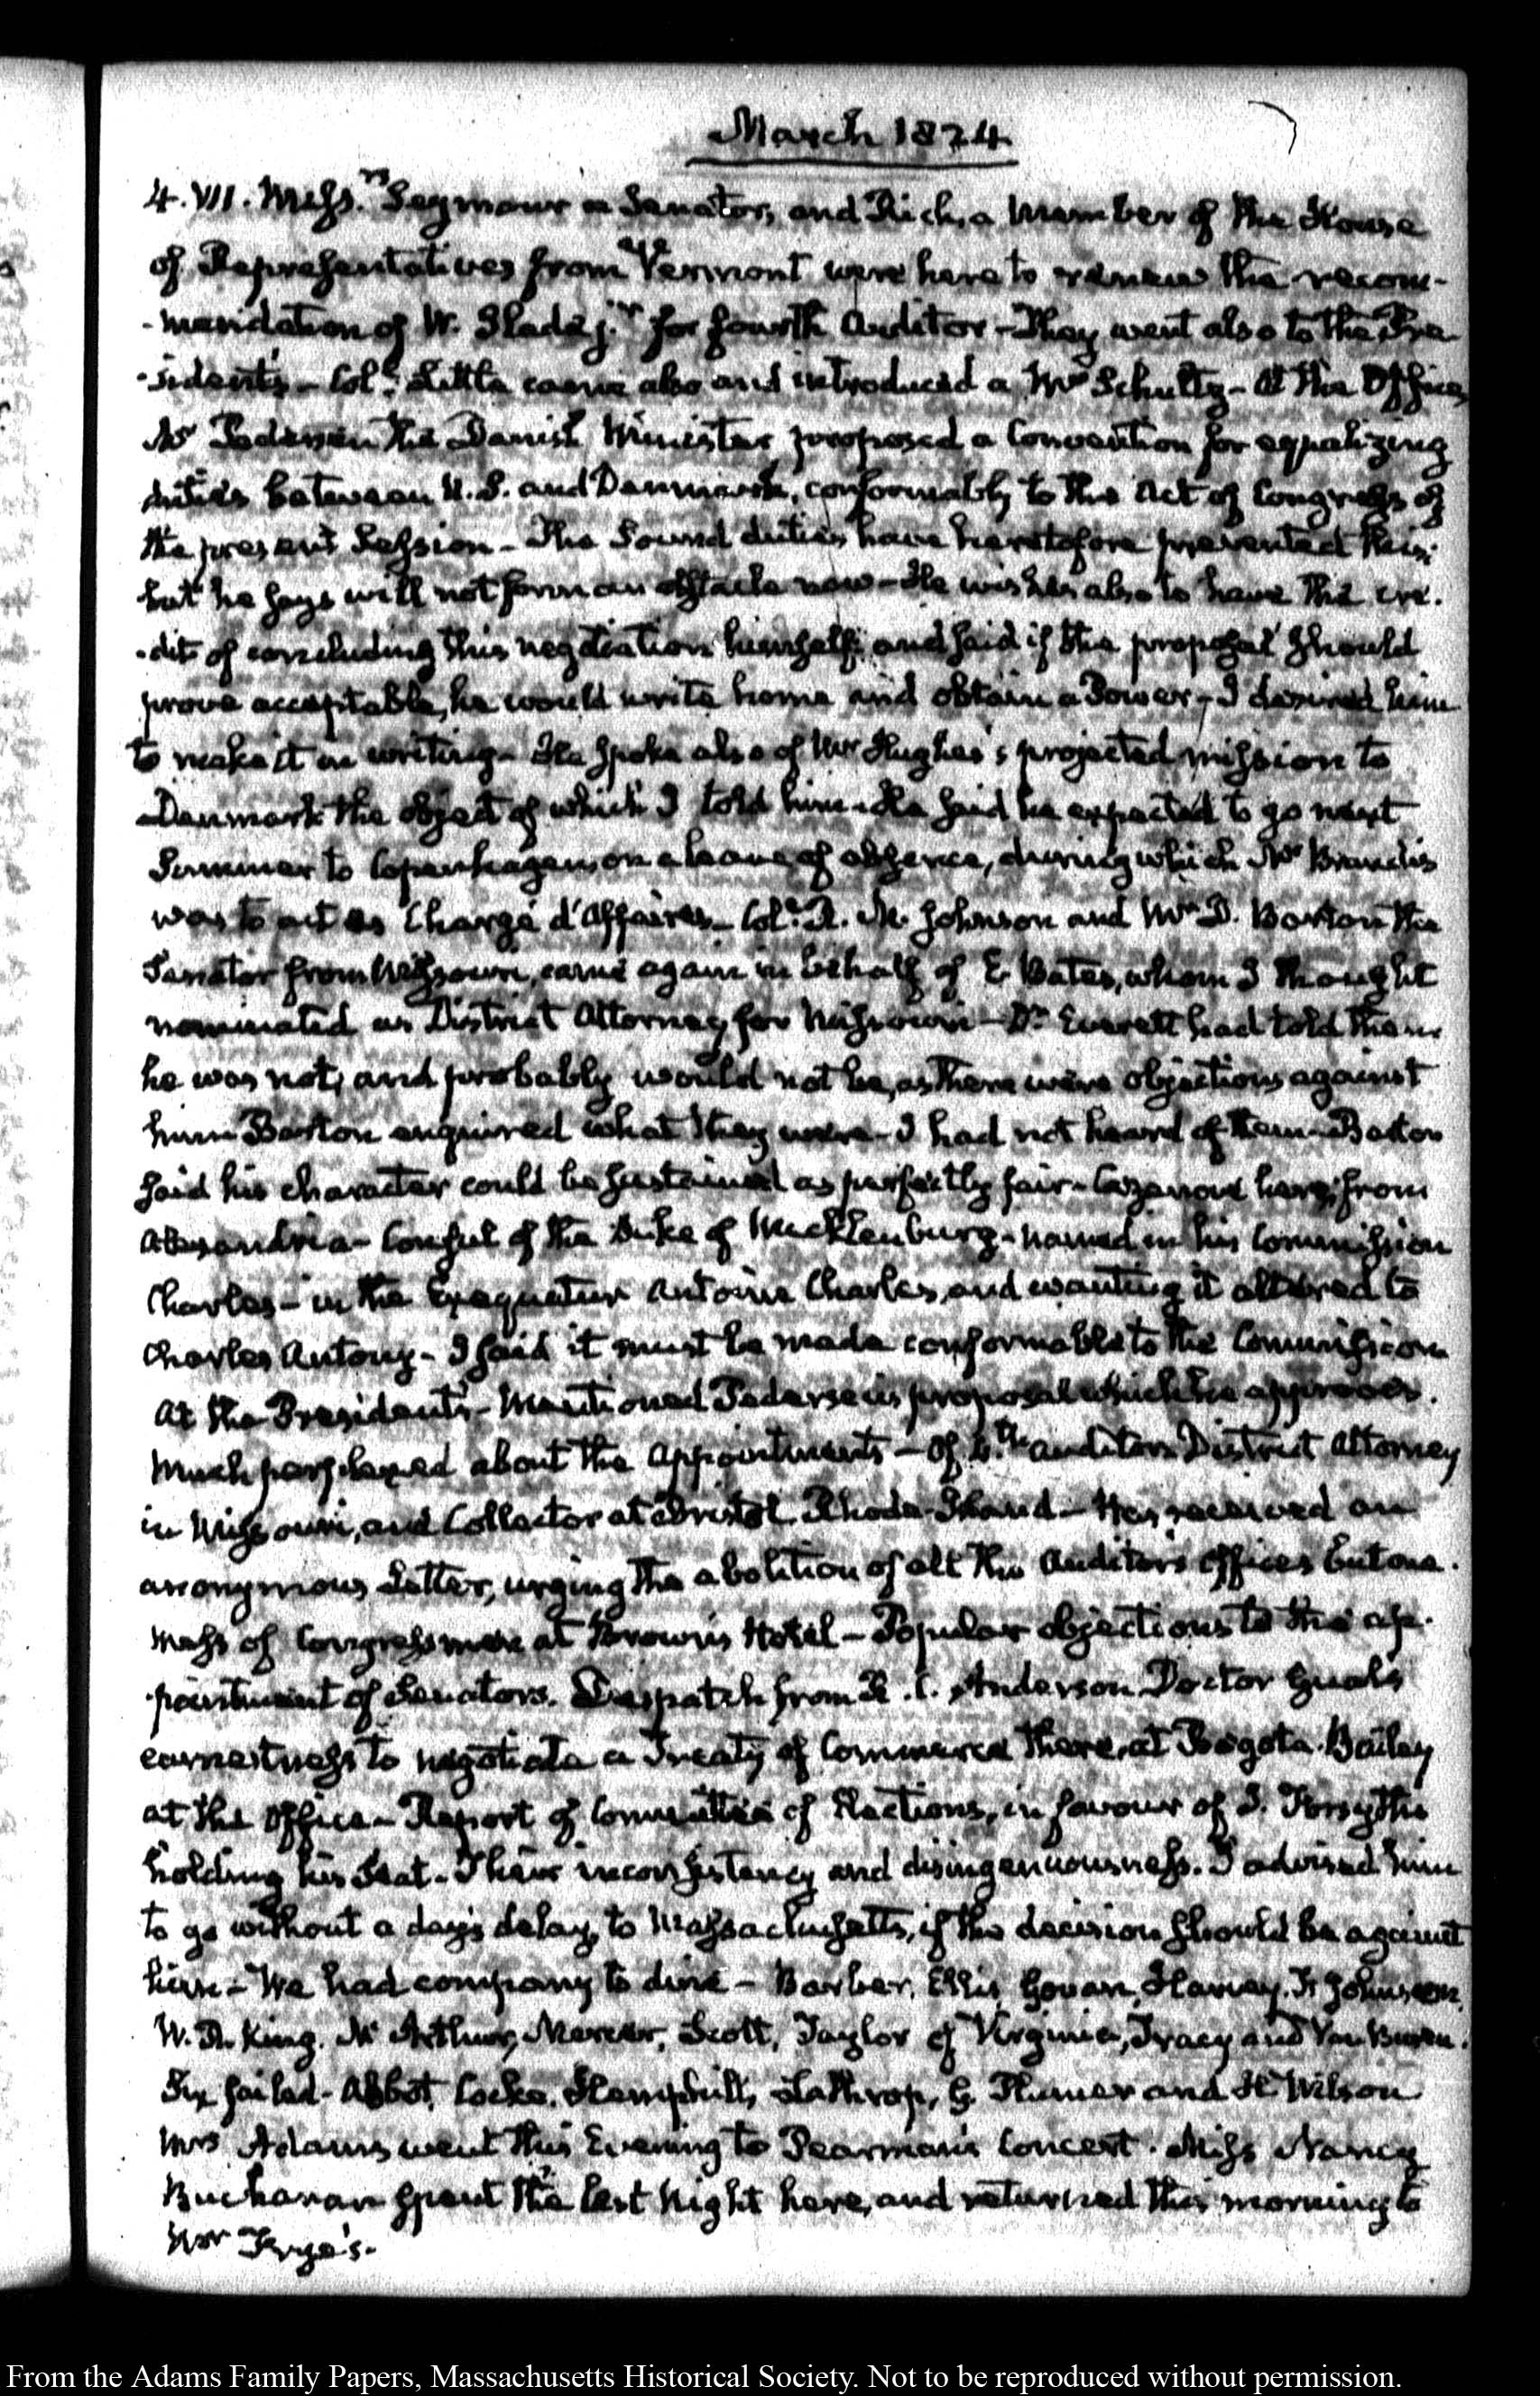 March 1824
4. VII. Mess.rs Seymour a Senator, and Rich, a member of the House
of Representatives from Vermont were here to renew the recom-
-mendation of W. Slade j.r for fourth Auditor - They went also to the Pre
-sident's - Col.l Little came also and introduced a Mr Schultz - At the Office,
Mr Pedersen the Danish Minister proposed a Convention for equalizing
duties between U.S. and Denmark, conformably to the Act of Congress of
the present Session - The Sound duties have heretofore prevented this;
but he says will not form an obstacle now - He wishes also to have the cre-
-dit of concluding this negotiation himself; and said if the proposal should
prove acceptable, he would write home and obtain a Power - I desired him
to make it in writing - He spoke also of Mr Hughes's projected mission to
Denmark the object of which I told him - He said he expected to go next
Summer to Copenhagen, on a leave of absence, during which Mr Brandis
was to act as Chargé d'Affaires - Col.l R. M. Johnson and Mr D. Barton the
Senator from Missouri, came again in behalf of E Bates, whom I thought
nominated as District Attorney for Missouri - Dr Everett had told them
he was not, and probably would not be, as there were objections against
him Barton enquired what they were - I had not heard of them - Barton
said his character could be sustained as perfectly fair - Cazenove here, from
Alexandria - Consul of the Duke of Mecklenburg - named in his Commission
Charles - in the Exequatur Antoine Charles, and wanting it altered to
Charles Antony - I said it must be made conformable to the Commission
At the President's - Mentioned Pedersen's proposal which he approves.
Much perplexed about the appointments - Of 4.th Auditor District Attorney
in Missouri, and Collector at Bristol Rhode-Island - Has received an
anonymous Letter, urging the abolition of all the Auditor's Offices but one.
Mess of Congressmen at Brown's Hotel - Popular objections to the ap-
-pointment of Senators. Despatch from R. C. Anderson Doctor Gual's
earnestness to negotiate a Treaty of Commerce there, at Bogota. Bailey
at the Office - Report of Committee of Elections, in favour of J. Forsyth's
holding his Seat - Their inconsistency and disingenuousness. I advised him
to go without a day's delay, to Massachusetts, if the decision should be against
him - We had company to dine - Barber, Ellis, Govan, Harvey, Fr Johnson,
W. R. King, Mc Arthur, Mercer, Scott, Taylor of Virginia, Tracy and Van Buren.
Six failed - Abbot, Cocke, Hemphill, Lathrop, G. Plumer and H Wilson
Mrs Adams went this Evening to Pearman's Concert. Miss Nancy
Buchanan spent the last Night here, and returned this morning to
Mr Frye's.
From the Adams Family Papers, Massachusetts Historical Society. Not to be reproduced without permission.